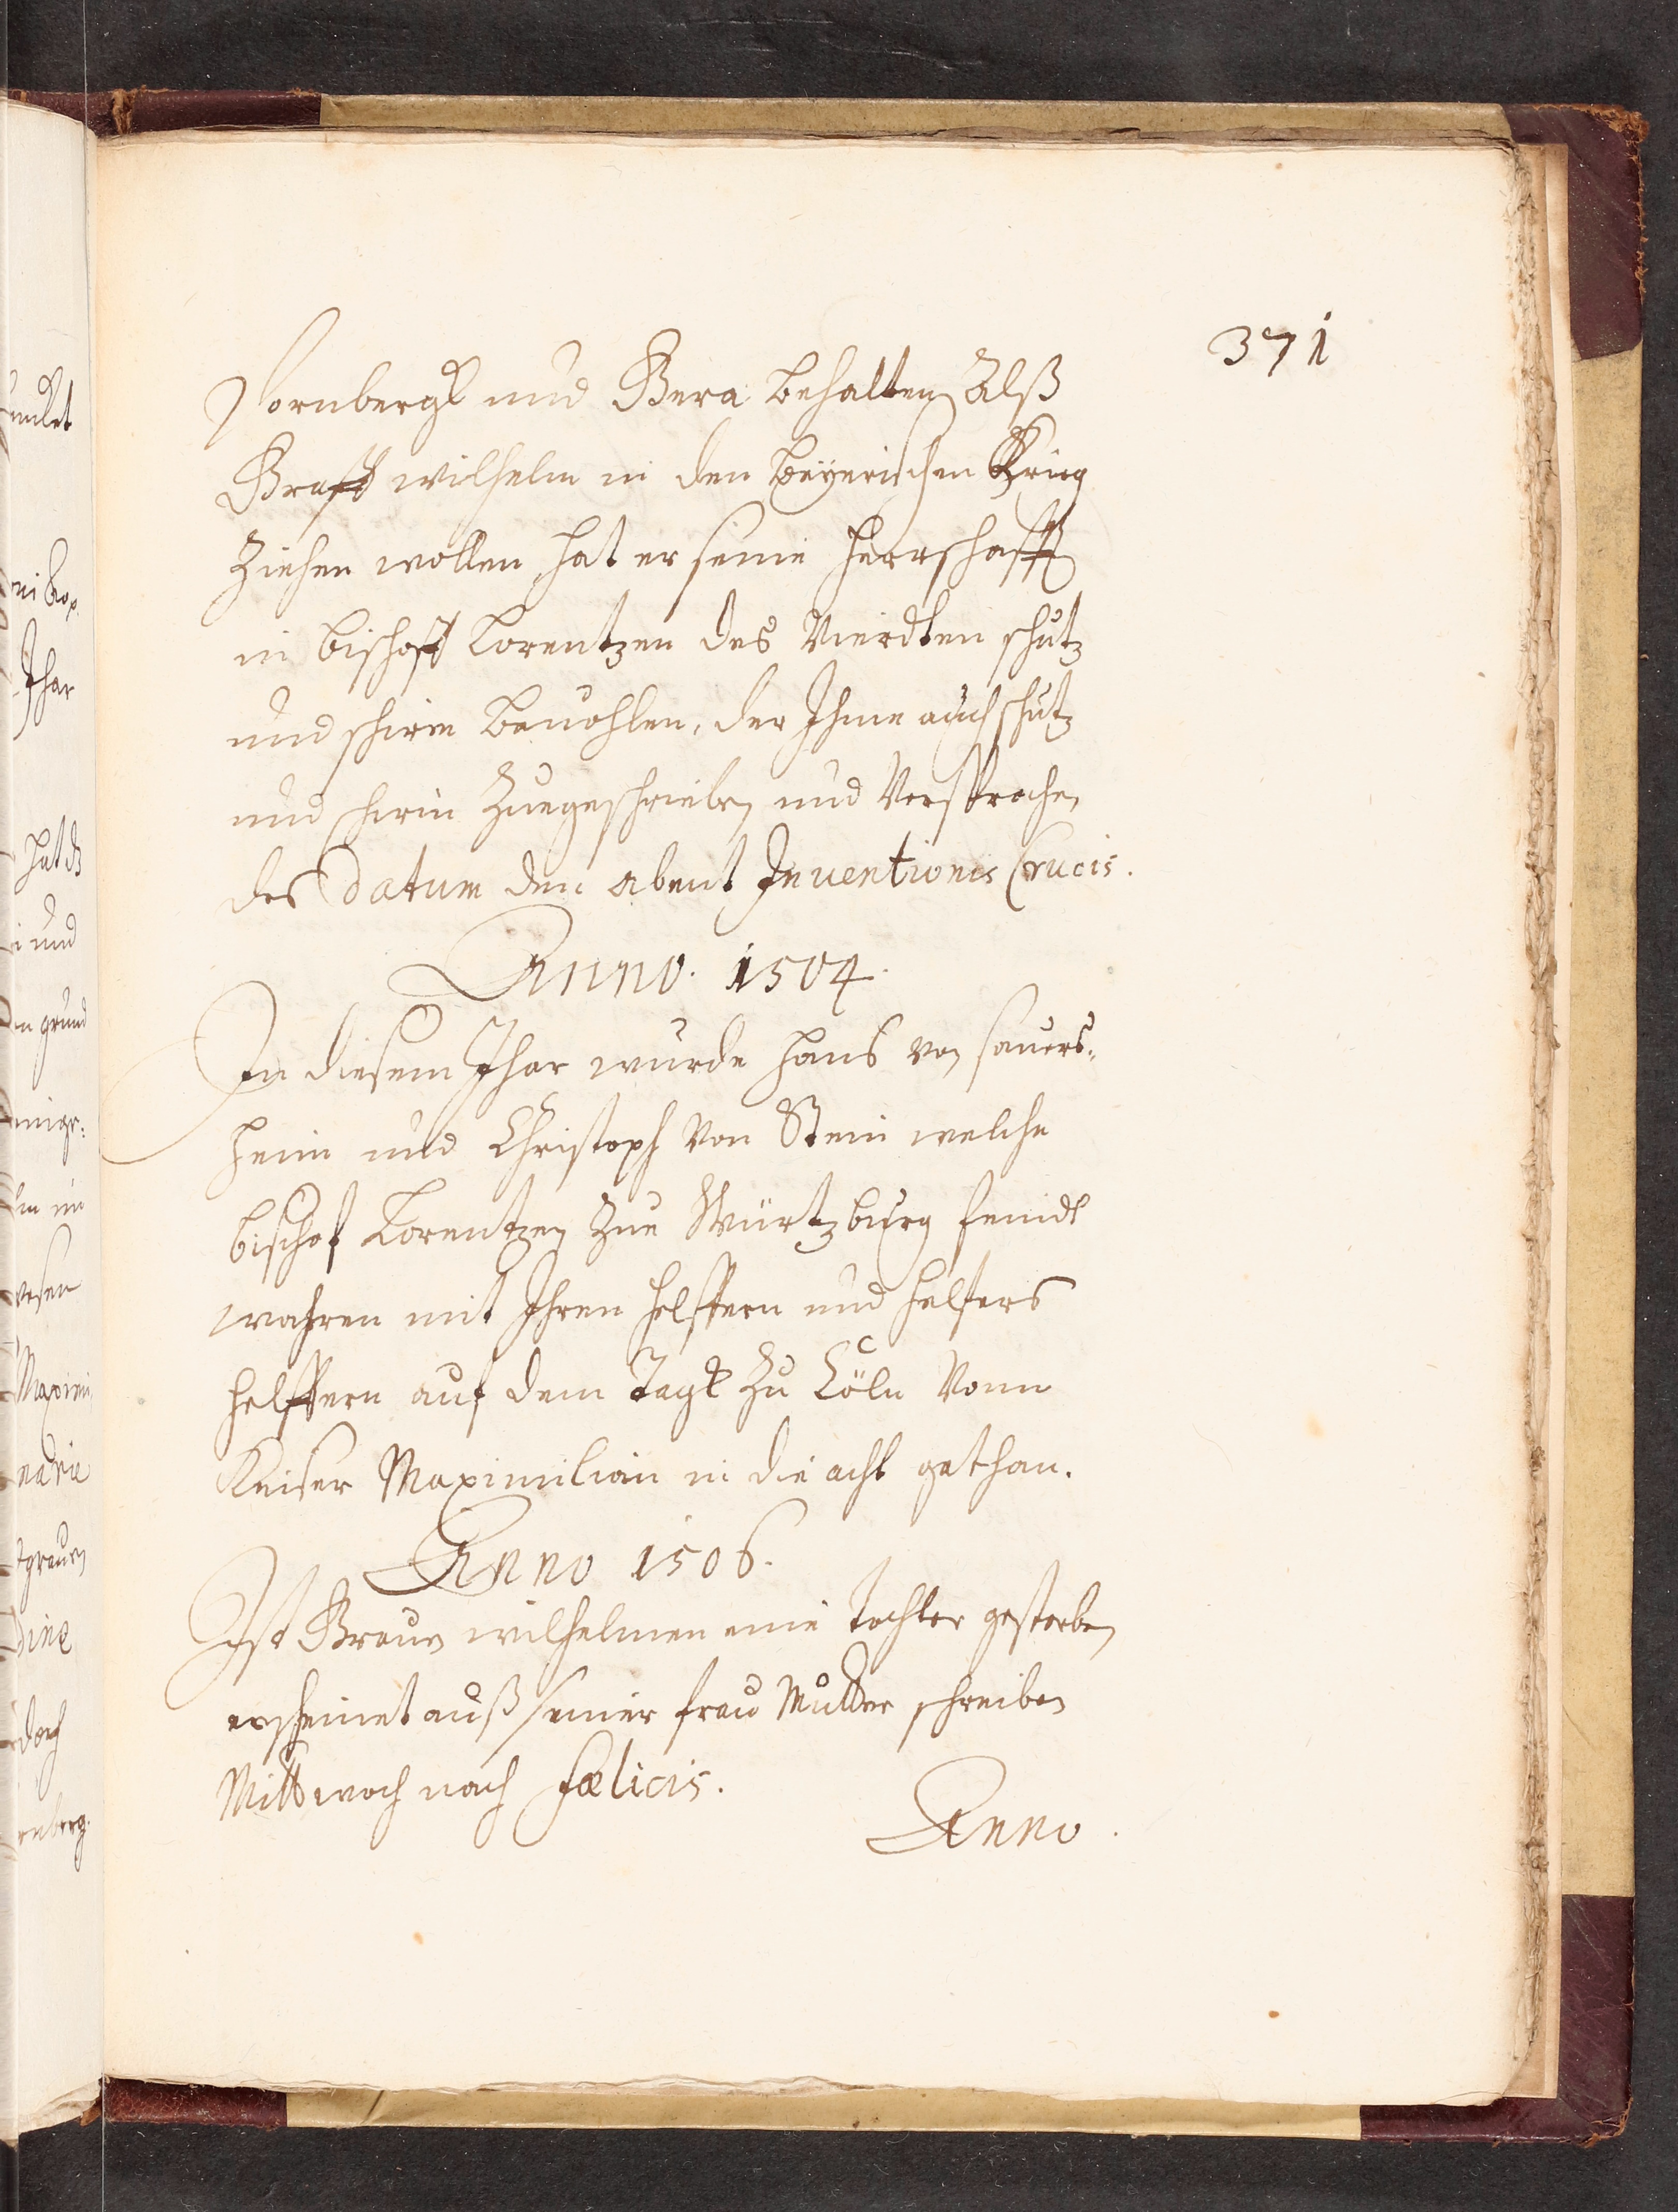 371
Dornbergk und Gera behalten Alß
Graff wilhelm in den beyerischen Krieg
Ziehen wollen, hat er seine Herrschafft
in bischoff Lorentzen des Vierdten schutz
und schirm beuohlen, der Ihme auch schutz
und schirm Zuegeschrieben und Versprochen,
des datum den abent Inuentionis Crucis.
Anno. 1504.
In diesem Jhar wurde Hans von sauers,,
heim und Christoph Von Stein welche
bischof Lorentzen Zue Würtzburg feindt
wahren mit Ihren helffern und helfers
helffern auf dem Tagk Zu Cöln Vonn
Keiser Maximilian in die acht gethan.
Anno 1506.
Ist Grauen wilhelmen eine tochter gestorben,
erscheinet auß seiner frau Mutter schreiben
Mittwoch nach Fœlicis.
Anno.